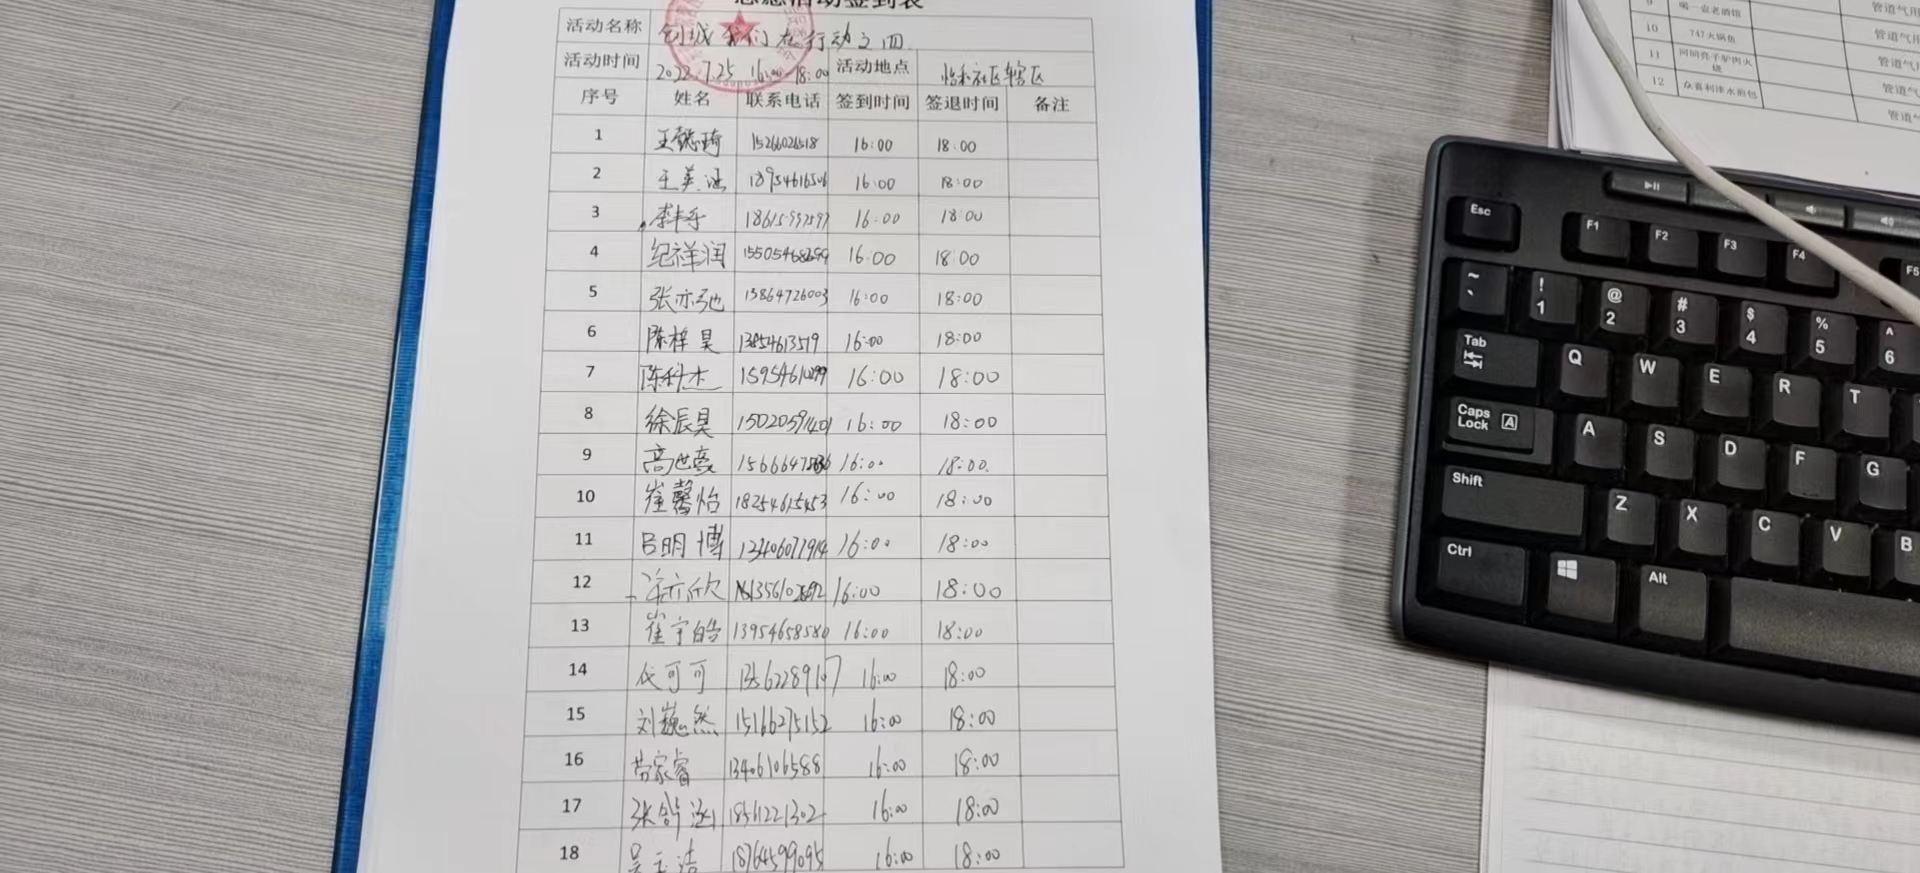 志愿活动签到表
活动名称 创城我们在行动之四
活动时间 2022.7.25 16:00-18:00 活动地点 怡和社区辖区
序号 姓名 联系电话 签到时间 签退时间 备注
1 王懿琦 15266026518 16:00 18:00
2 王美涵 18954616506 16:00 18:00
3 李丰乐 16:00 18:00
4 纪祥润 16:00 18:00
5 张亦弛 15864726003 16:00 18:00
6 陈梓昊 13854613519 16:00 18:00
7 陈科杰 16:00 18:00
8 徐辰昊 15020591401 16:00 18:00
9 高世豪 16:00 18:00.
10 崔馨怡 18254615453 16:00 18:00
11 吕明博 16:00 18:00
12 16:00 18:00
13 崔宇皓 13954658580 16:00 18:00
14 代可可 13562289107 16:00 18:00
15 刘巍然 15166275152 16:00 18:00
16 苟家睿 13406106588 16:00 18:00
17 张舒涵 16:00 18:00
18 18764599095 16:00 18:00
9 喝一壶老酒馆 管道气用
10 747火锅鱼 管道气用
11 管道气
12 管道气
管道气
Esc F1 F2 F3 F4 F5
~ ` ! 1 @ 2 # 3 $ 4 % 5 ^ 6
Tab Q W E R T
Caps Lock A A S D F G
Shift Z X C V B
Ctrl Alt